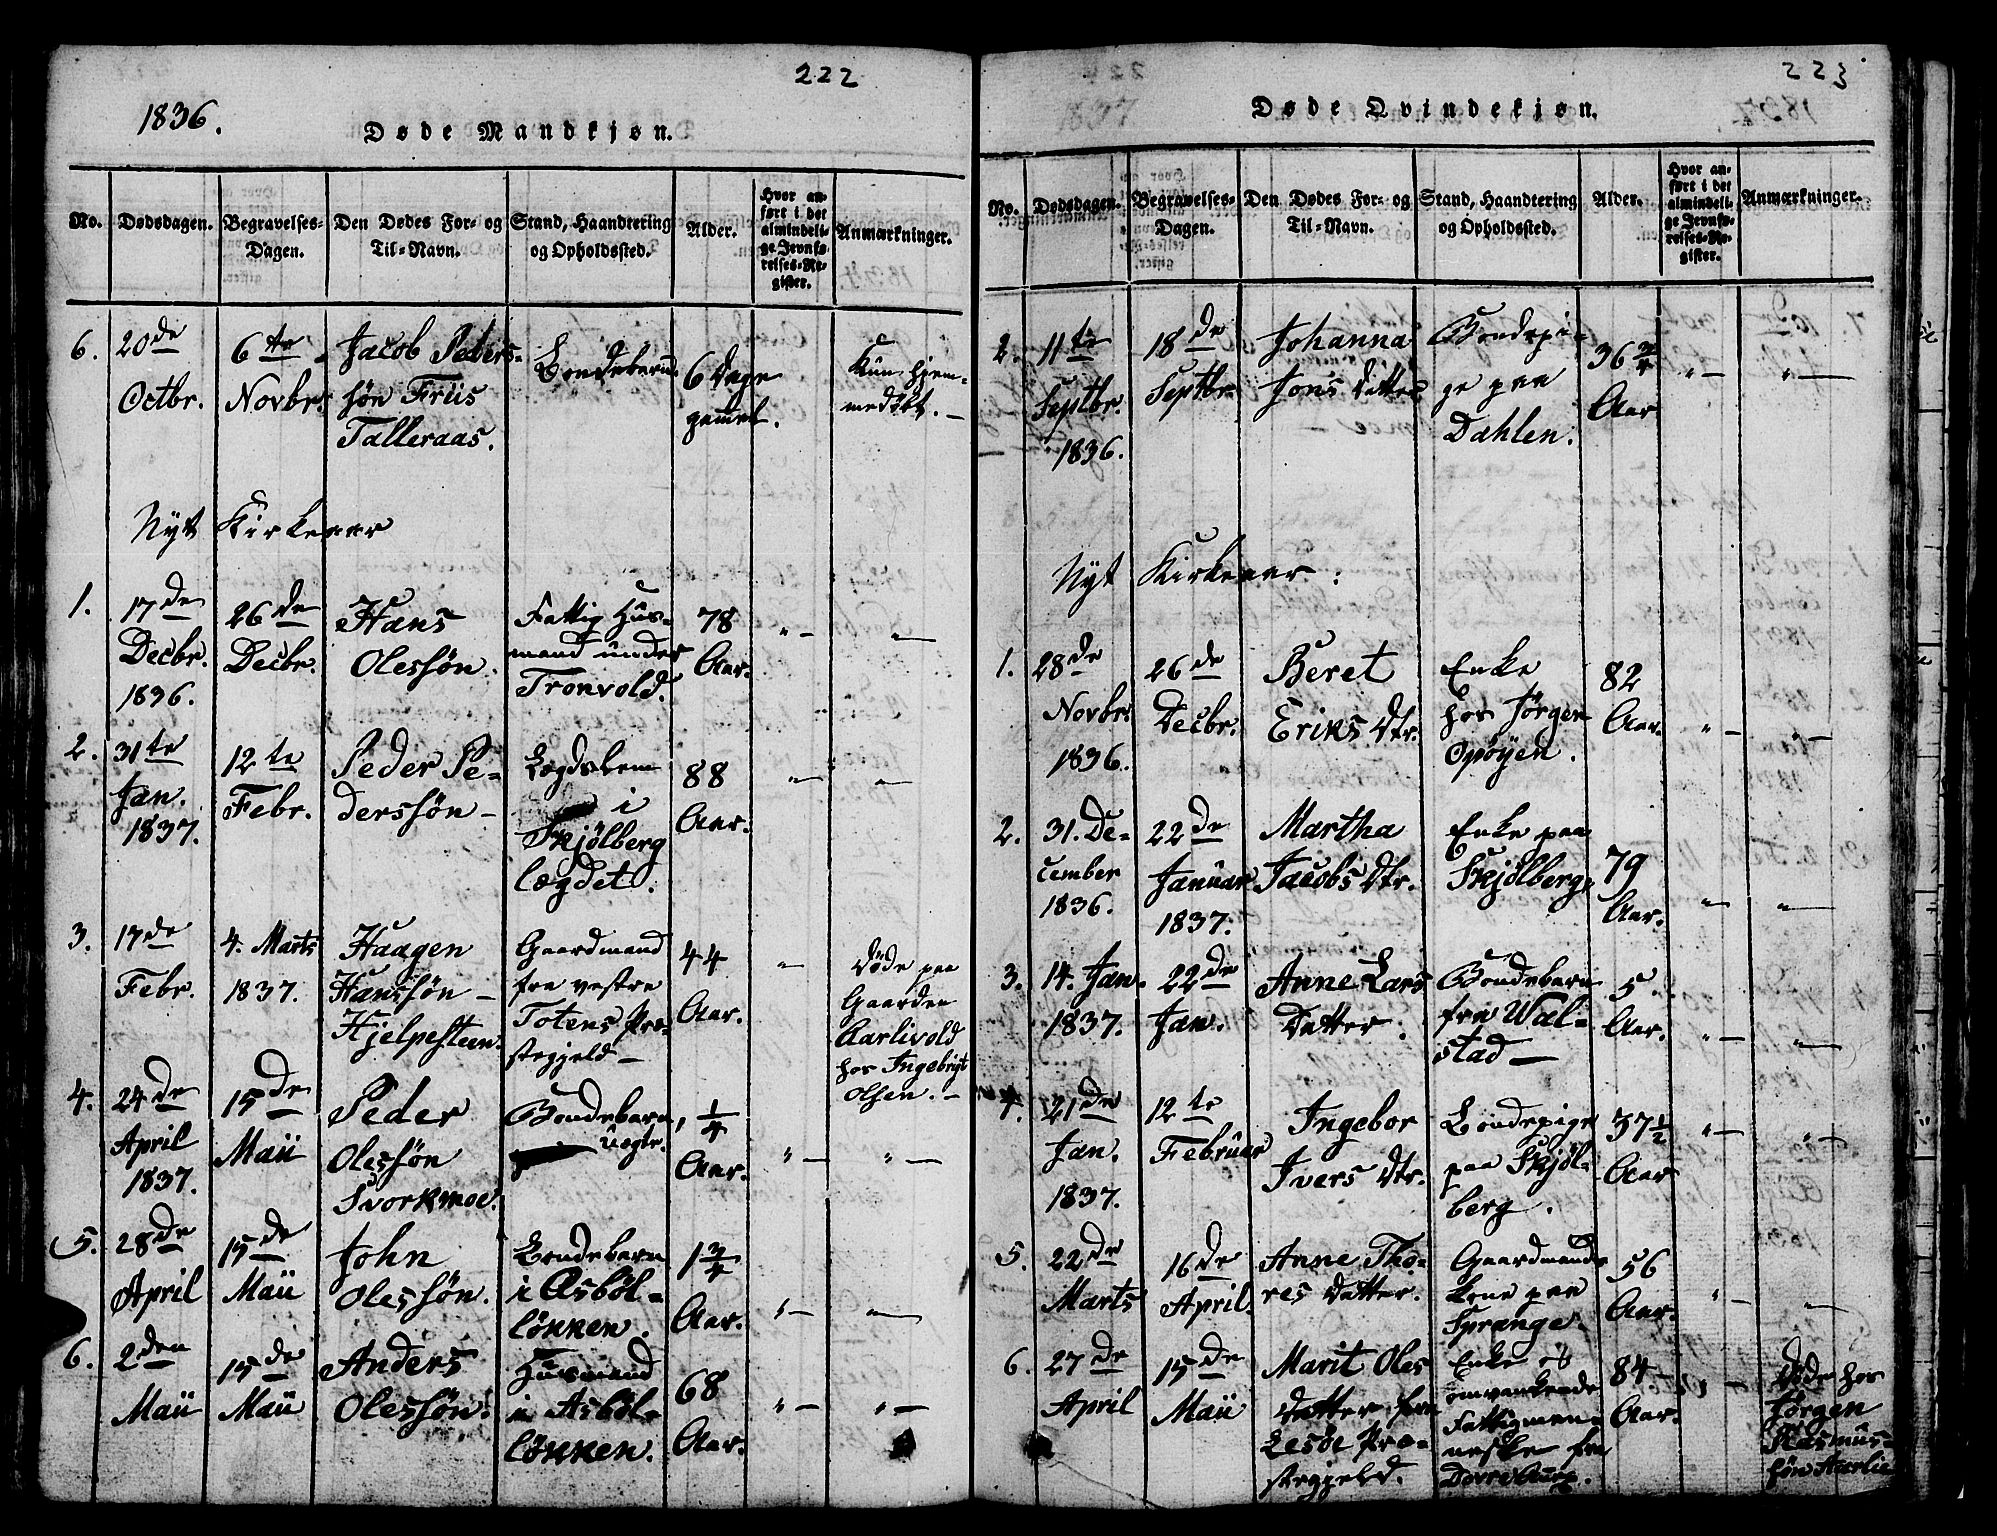 222
1836.
Døde Mandkjøn.
No.
Dødsdagen.
Begravelses-
Dagen.
Den Dødes For- og
Til-Navn.
Stand, Haandtering
og Opholdssted.
Alder.
Hvor an-
ført i det
almindeli-
ge Jevnfø-
relses-Re-
gister.
Anmærkninger.
6.
20de
Octbr.
6te
Novbr.
Jacob Peders-
søn Friis
Talleraas.
Bondebarn
6 Dage
gammel.
Kun hjem-
medøbt. —
Nyt Kirkeaar
1.
17de
Decbr.
1836.
26de
Decbr.
Hans
Olessøn.
Fattig Hus-
mand under
Tronvold.
78
Aar.
" —
" —
2.
31te
Jan.
1837.
12te
Febr.
Peder Pe-
derssøn —
Lægdslem
i
Skjølberg
lægdet.
88
Aar.
" —
" —
3.
17de
Febr.
4. Marts
1837.
Haagen
Hanssøn —
Hjelpesteen.
Gaardmand
fra vestre
Totens Præ-
stegjeld —
44
Aar.
" —
Døde paa
Gaarden
Aarlivold
hos Ingebrigt
Olsen. —
4.
24de
April
1837.
15de
Maii
Peder
Olessøn
Svorkmoe.
Bondebarn,
Uægte.
1/4
Aar.
" —
" —
5.
28de
April
15de
Maii
John
Olessøn.
Bondebarn
i Asbøl-
lønken.
1 3/4
Aar.
" —
" —
6.
2den
Maii
15de
Maii
Anders
Olessøn.
Husmand
i Asbøl-
lønken.
68
Aar.
" —
" —
223
1837
Døde Qvindekjøn.
No.
Dødsdagen.
Begravelses-
Dagen.
Den Dødes For- og
Til-Navn.
Stand, Haandtering
og Opholdssted.
Alder.
Hvor an-
ført i det
almindeli-
ge Jevnfø-
relses-Re-
gister.
Anmærkninger.
2.
11te
Septbr.
1836.
18de
Septbr.
Johanna
Jons Datter
Bondepi-
ge paa
Dahlen.
36 3/4
Aar
" —
" —
Nyt Kirkeaar:
1.
28de
Novbr.
1836.
26de
Decbr.
Beret
Eriks Dtr.
Enke
hos Jørgen
Opøyen.
82
Aar.
" —
" —
2.
31. De-
cember
1836.
22de
Januar
1837.
Martha
Jacobs Dtr.
Enke paa
Skjølberg.
79
Aar.
" —
" —
3.
14. Jan.
1837.
22de
Jan.
Anne Lars
Datter.
Bondebarn
fra Wal-
stad —
5.
Aar.
" —
" —
4.
21de
Jan.
1837.
12te
Februar
Ingebor
Ivers Dtr.
Bondepige
paa Skjøl-
berg.
37 1/2
Aar
" —
" —
5.
22de
Marts
16de
April.
Anne Tho-
res Datter.
Gaardmands
Kone paa
Sprange.
56
Aar.
" —
" —
6.
27de
April
15de
Maii
Marit Oles
Datter fra
Lesøe Præ-
stegjeld.
Enke og
omvankende
Fattigmen-
neske fra

84
Aar.
" —
Døde hos
Jørgen
Rasmus-
søn Aarlie